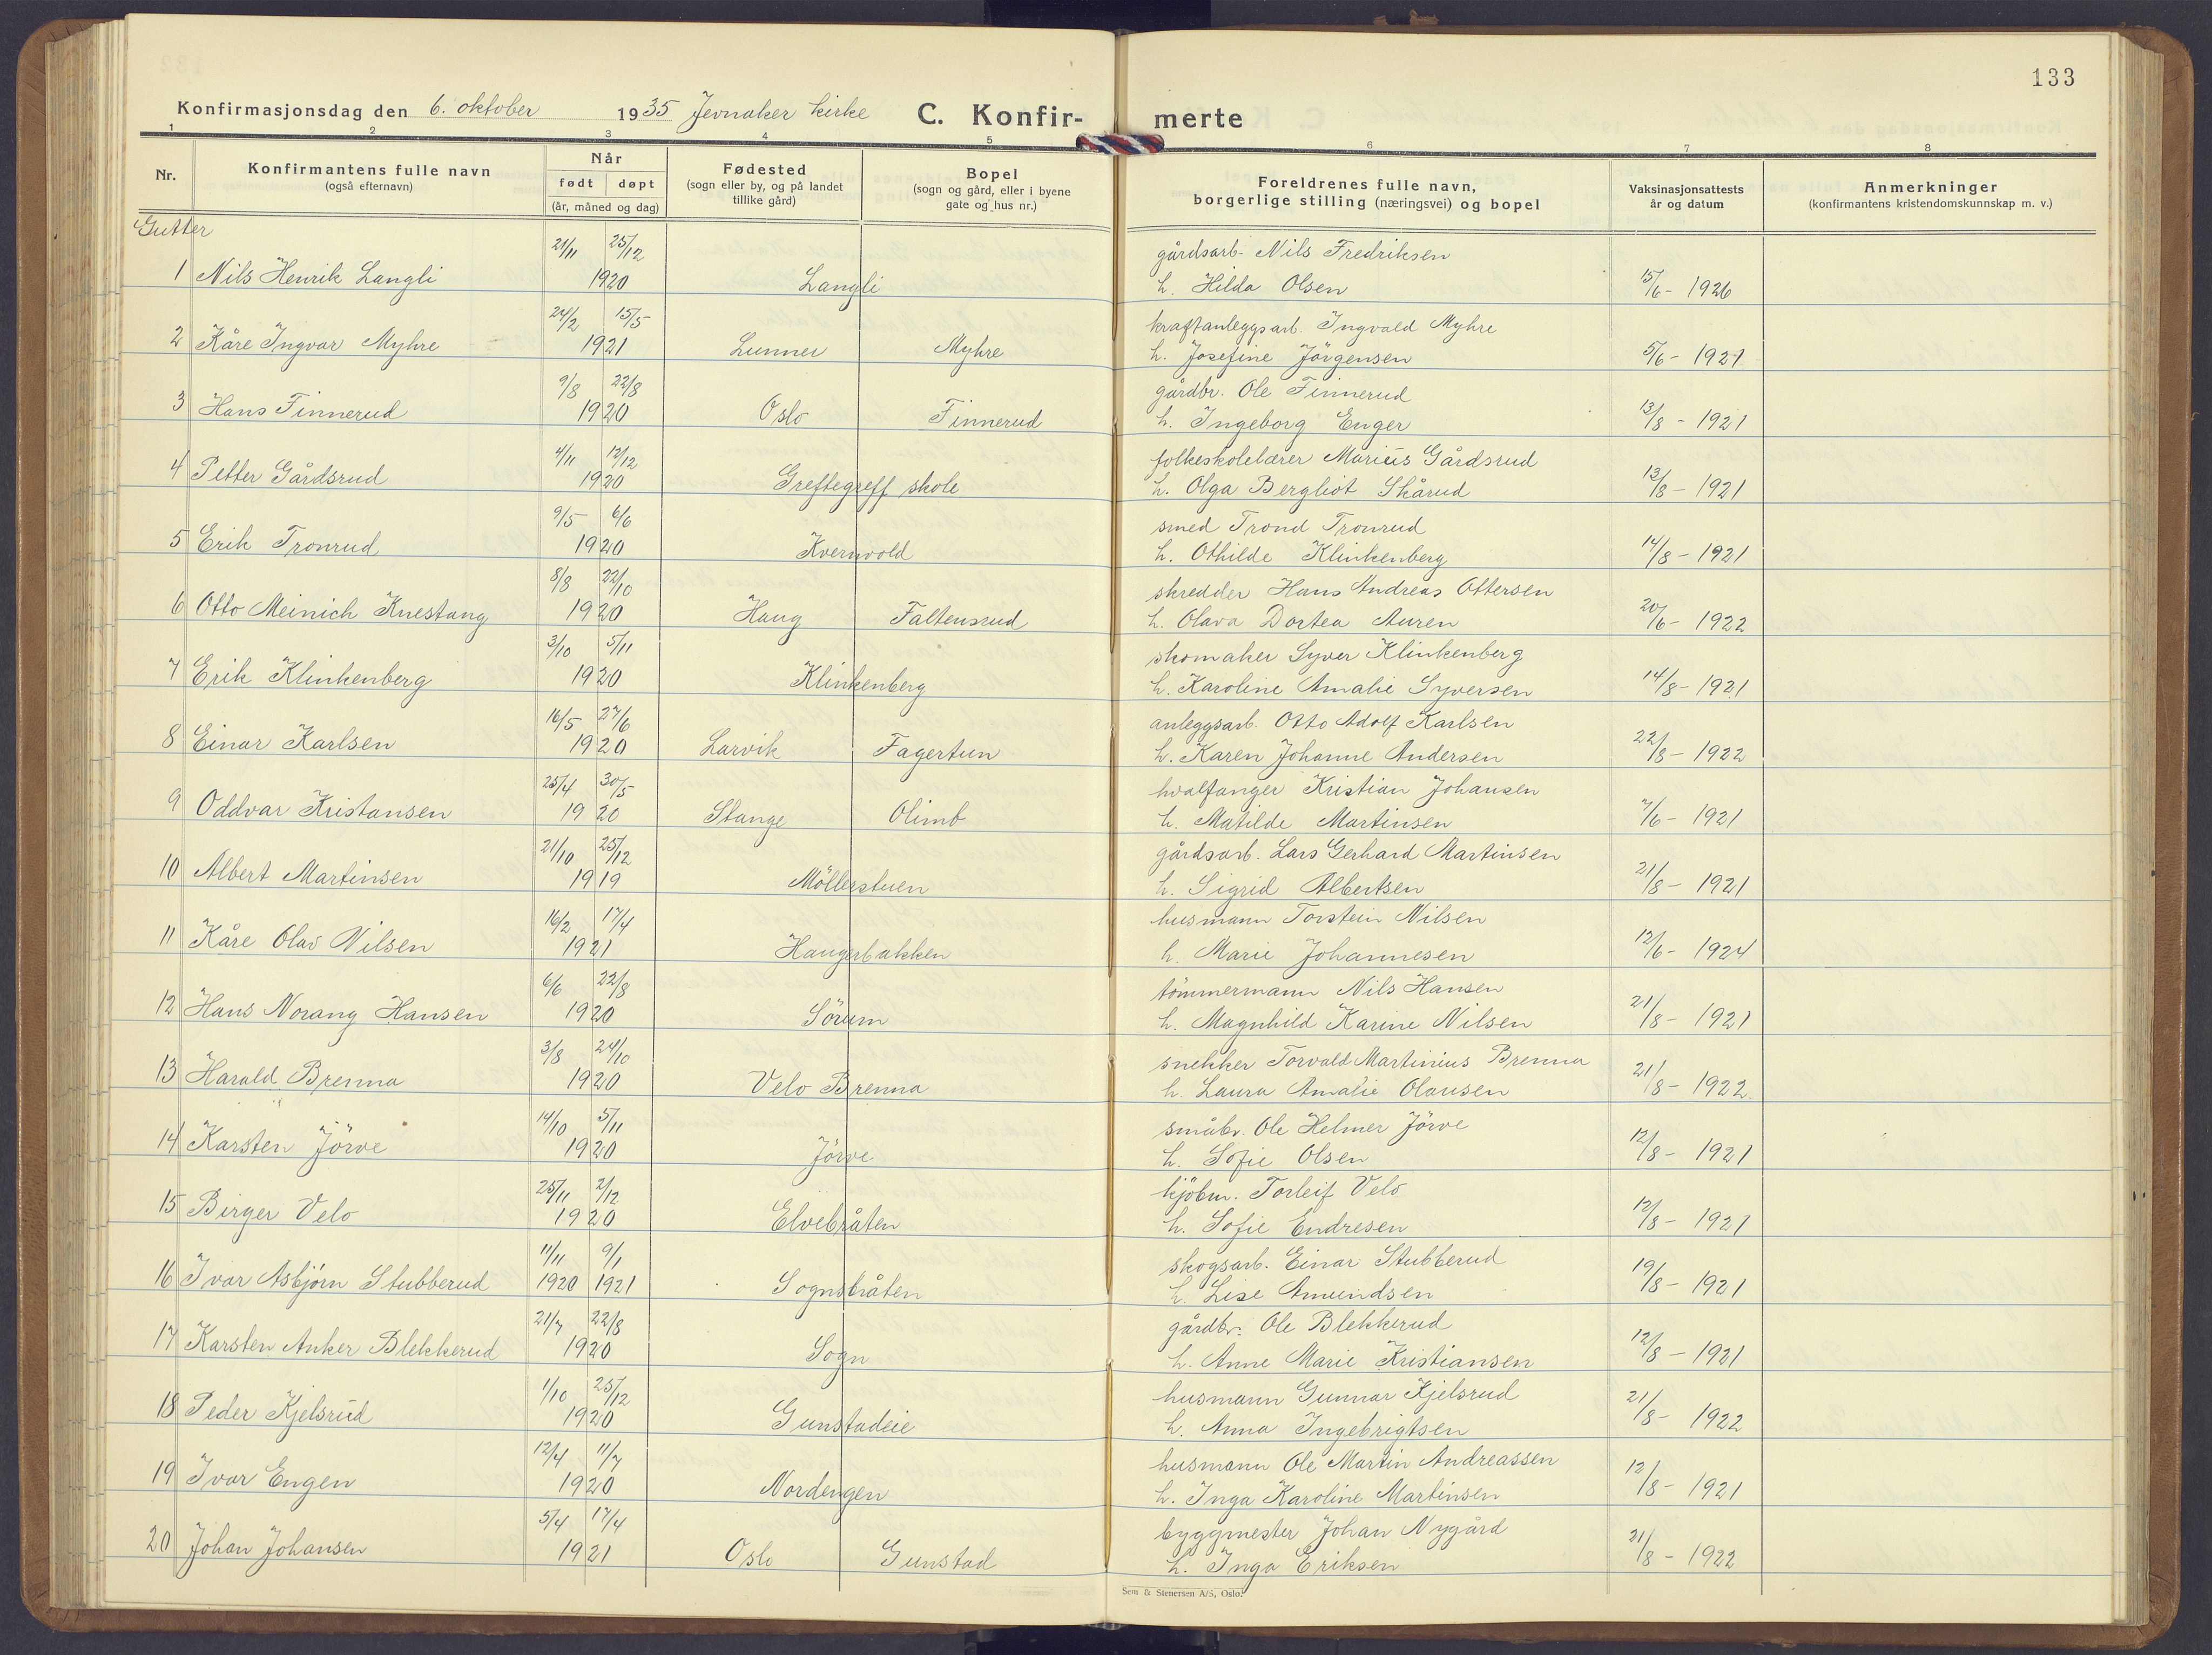 133
Konfirmasjonsdag den 6. oktober 1935 Jevnaker kirke C. Konfir- merte
1 2 3 4 5 6 7 8
Nr. Konfirmantens fulle navn (også efternavn) Når født døpt (år, måned og dag) Fødested (sogn eller by, og på landet tillike gård) Bopel (sogn og gård, eller i byene gate og hus nr.) Foreldrenes fulle navn, borgerlige stilling (næringsvei) og bopel Vaksinasjonsattests år og datum Anmerkninger (konfirmantens kristendomskunnskap m. v.)
Gutter
21/11 25/12 gårdsarb. Nils Fredriksen
1 Nils Henrik Langli 1920 Langli h. Hilda Olsen 15/6 - 1926
24/2 15/5 kraftanleggsarb. Ingvald Myhre
2 Kåre Ingvar Myhre 1921 Lunner Myhre h. Josefine Jörgensen 5/6 - 1921
9/8 22/8 gårdbr. Ole Finnerud
3 Hans Finnerud 1920 Oslo Finnerud h. Ingeborg Enger 13/8 - 1921
4/11 12/12 folkeskolelærer Marius Gårdsrud
4 Petter Gårdsrud 1920 Greftegreff skole h. Olga Bergliot Skårud 13/8 - 1921
9/5 6/6 smed Trond Tronrud
5 Erik Tronrud 1920 Kvernvold h. Othilde Klinkenberg 14/8 - 1921
8/8 22/10 skredder Hans Andreas Ottersen
6 Otto Meinich Knestang 1920 Haug Faltensrud h. Olava Dortea Auren 20/6 - 1922
3/10 5/11 skomaker Syver Klinkenberg
7 Erik Klinkenberg 1920 Klinkenberg h. Karoline Amalie Syversen 14/8 - 1921
16/5 27/6 anleggsarb. Otto Adolf Karlsen
8 Einar Karlsen 1920 Larvik Fagertun h. Karen Johanne Andersen 22/8 - 1922
25/4 30/5 hvalfanger Kristian Johansen
9 Oddvar Kristansen 1920 Stange Olimb h. Matilde Martinsen 7/6 - 1921
21/10 25/12 gårdsarb. Lars Gerhard Martinsen
10 Albert Martinsen 1919 Möllerstuen h. Sigrid Albertsen 21/8 - 1921
16/2 17/4 husmann Torstein Nilsen
11 Kåre Olav Nilsen 1921 Haugerbakken h. Marie Johannesen 12/6 - 1924
6/6 22/8 tömmermann Nils Hansen
12 Hans Norang Hansen 1920 Sörum h. Magnhild Karine Nilsen 21/8 - 1921
3/8 24/10 snekker Torvald Martinius Brenna
13 Harald Brenna 1920 Velo Brenna h. Laura Amalie Olausen 21/8 - 1922
14/10 5/11 småbr. Ole Helmer Jörve
14 Karsten Jörve 1920 Jörve h. Sofie Olsen 12/8 - 1921
25/11 2/12 kjöbm. Torleif Velo
15 Birger Velo 1920 Elvebråten h. Sofie Endresen 12/8 - 1921
11/11 9/1 skogsarb. Einar Stubberud
16 Ivar Asbjørn Stubberud 1920 1921 Sognsbråten h. Lise Amundsen 19/8 - 1921
21/7 22/8 gårdbr. Ole Blekkerud
17 Karsten Anker Blekkerud 1920 Sogn h. Anne Marie Kristiansen 12/8 - 1921
1/10 25/12 husmann Gunnar Kjelsrud
18 Peder Kjelsrud 1920 Gunstadeie h. Anna Ingebrigtsen 21/8 - 1922
12/4 11/7 husmann Ole Martin Andreassen
19 Ivar Engen 1920 Nordengen h. Inga Karoline Martinsen 12/8 - 1921
5/4 17/4 byggmester Johan Nygård
20 Johan Johansen 1921 Oslo Gunstad h. Inga Eriksen 21/8 - 1922
Sem & Stenersen A/S, Oslo.